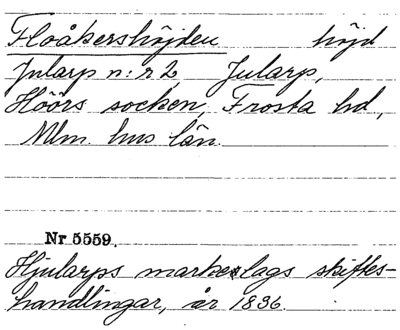 Floåkershöjden höjd
Jularp n:r 2, Jularp,
Höörs socken, Frosta hd,
Mlm. hus län.
Nr 5559.
Hjularps markelags skiftes-
handlingar, år 1836.